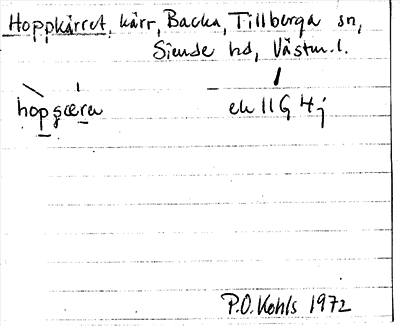 Hoppkärret, kärr, Backa, Tillberga sn,
Siende hd, Västm. l.
hopçæreṇ ek 11G 4j
P.O. Kohls 1972